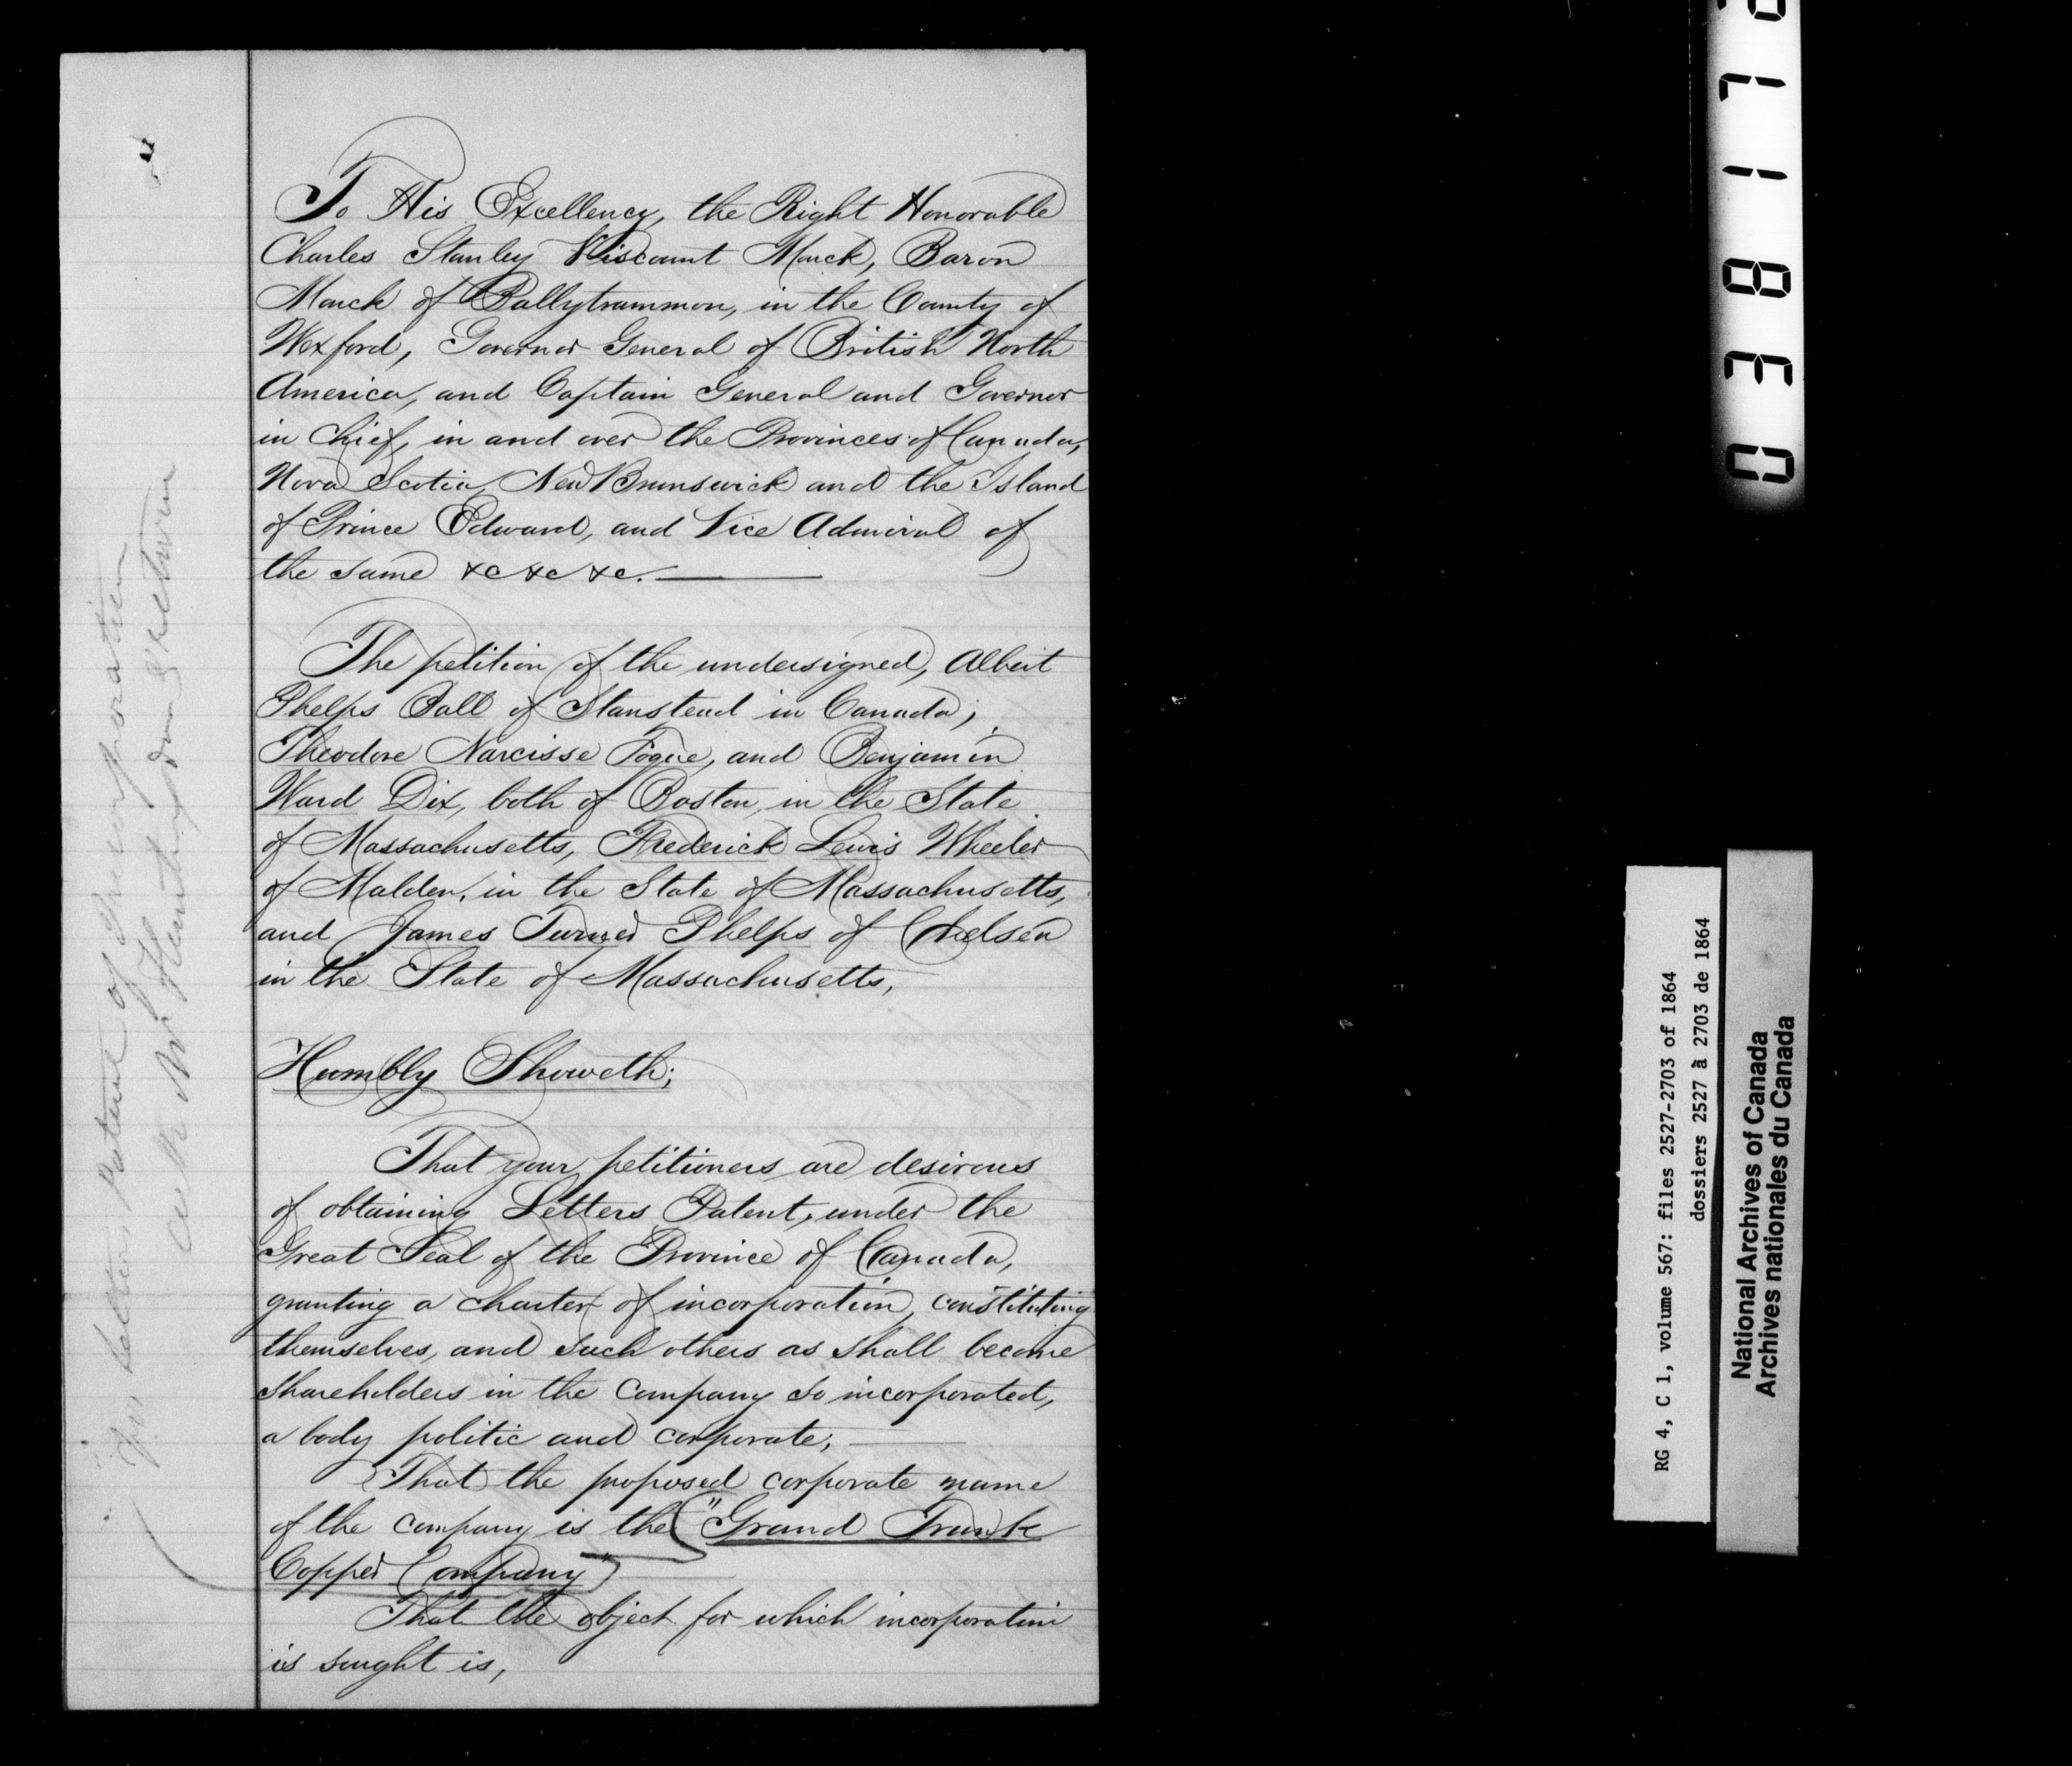 To His Excellency, the Right Honorable
Charles Stanley Viscount Monck, Baron
Monck of Ballytrammon, in the County of
Wexford, Governor General of British North
America, and Captain General and Governor
in Chief, in and over the Provinces of Canada,
Nova Scotia, New Brunswick and the Island
of Prince Edward, and Vice Admiral of
the same &c &c &c.
The petition of the undersigned, Albert
Phelps Ball of Stanstead in Canada;
Theodore Narcisse Foque, and Benjamin
Ward Dix, both of Boston, in the State
of Massachusetts, Frederick Lewis Wheeler
of Malden, in the State of Massachusetts,
and James Turner Phelps of Chelsea
in the State of Massachusetts,
Humbly Showeth;
That your petitioners are desirous
of obtaining Letters Patent, under the
Great Seal of the Province of Canada,
granting a charter of incorporation, constituting
themselves, and such others as shall become
shareholders in the company so incorporated,
a body politic and corporate;
That the proposed corporate name
of the company is the "Grand Trunk
Copper Company"
That the object for which incorporation
is sought is,
for Letters Patent of Incorporation
03817
RG 4, C 1, volume 567: files 2527-2703 of 1864
dossiers 2527 à 2703 de 1864
National Archives of Canada
Archives nationales du Canada